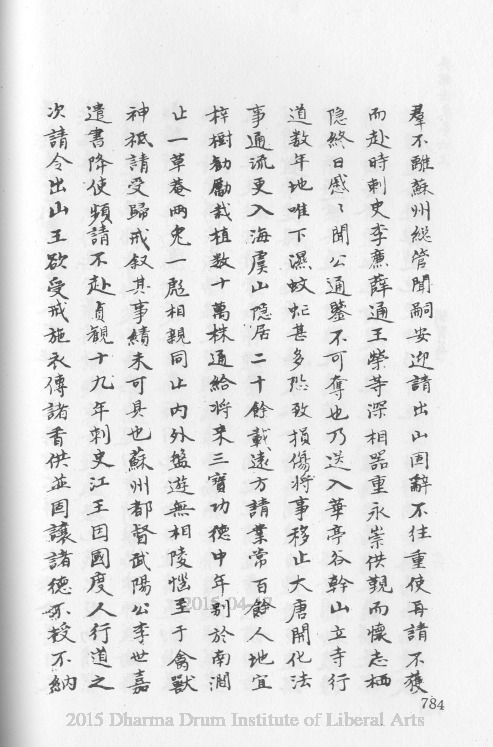 羣不離蘇州総管聞嗣安迎請出山固辭不往重使再請不獲
而赴時刺史李廉薛通王榮等深相器重永崇供覲而懷志栖
隐終日慼〻聞公通鑒不可奪也乃送入華亭谷幹山立寺行
道数年地唯下濕蚊虻甚多恐致損傷將事移止大唐開化法
事通流更入海虞山隐居二十餘載遠方請業常百餘人地宜
梓樹勧勵栽植数十萬株通給将来三寶功德中年别於南澗
止一草菴兩兎一彪相親同止内外盤遊無相陵惱至于禽獸
神祇請受歸戒叙其事績未可具也蘇州都督武陽公李世嘉
遣書降使頻請不赴貞觀十九年刺史江王因國度人行道之
次請令出山王欲受戒施衣傳諸香供並固讓諸德不授不納
784
2015-04-17
2015 Dharma Drum Institute of Liberal Arts